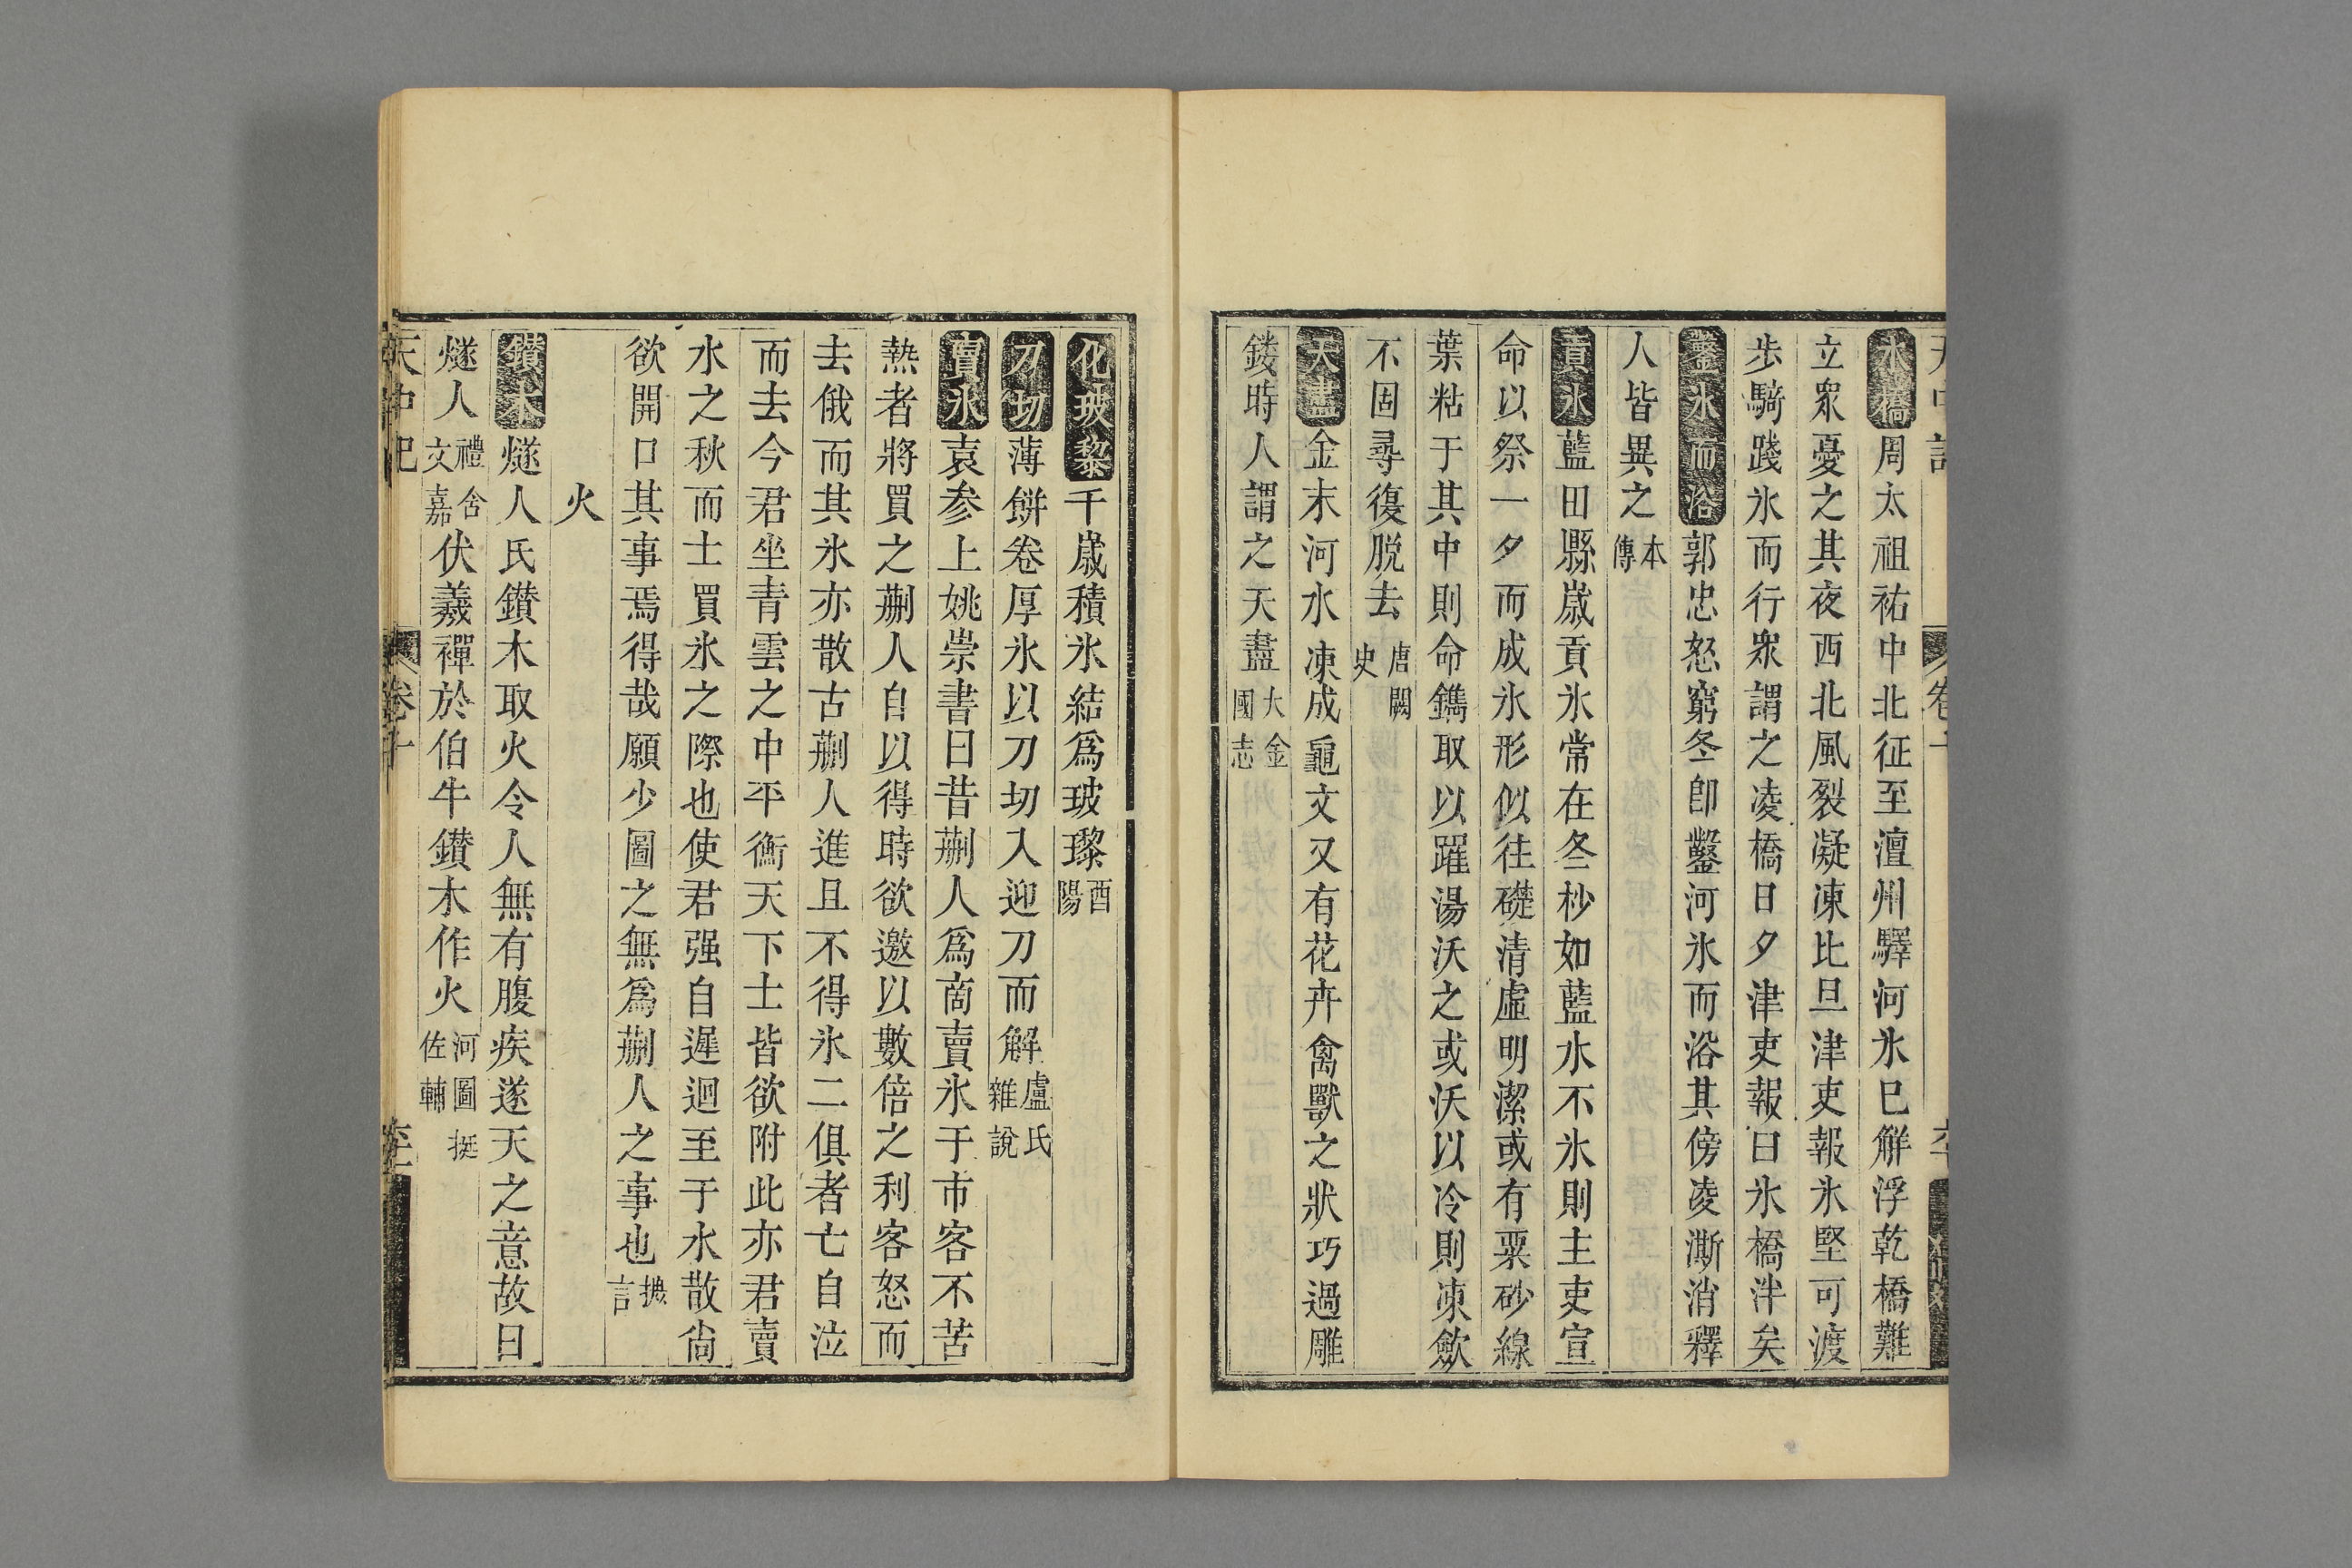 氷橋周太祖祐中北征至澶州驛河氷巳觧浮乾橋難
立衆憂之其夜西北風裂凝凍比旦津吏報氷堅可渡
歩騎踐氷而行衆謂之凌橋日夕津吏報曰氷橋泮矣
鑿氷而浴郭忠恕窮冬卽鑿河氷而浴其傍凌澌消釋
人皆異之本傳
貢氷藍田縣歲貢氷常在冬杪如藍水不氷則主吏宣
命以祭一夕而成氷形似徃礎清虛明潔或有粟砂線
葉粘于其中則命鐫取以躍湯沃之或沃以冷則凍歛
不固尋復脱去唐闕史
天畫金末河水凍成龜文又有花卉禽獸之狀巧過雕
鏤時人謂之天畫大金國志
化玻黎千歲積氷結爲玻瓈酉陽
刀切薄餅卷厚氷以刀切入迎刀而解盧氏雜說
賣氷袁参上姚崇書曰昔蒯人爲商賣氷于市客不苦
熱者將買之蒯人自以得時欲邀以數倍之利客怒而
去俄而其氷亦散古蒯人進且不得氷二俱者亡自泣
而去今君坐青雲之中平衡天下士皆欲附此亦君賣
水之秋而士買氷之際也使君强自遲迴至于氷散尙
欲開口其事焉得哉願少圖之無爲蒯人之事也摭言
火
鑚木燧人氏鑚木取火令人無有腹疾遂天之意故曰
燧人禮含文嘉伏羲禪於伯牛鑚木作火河圖挺佐輔
天中記 卷十